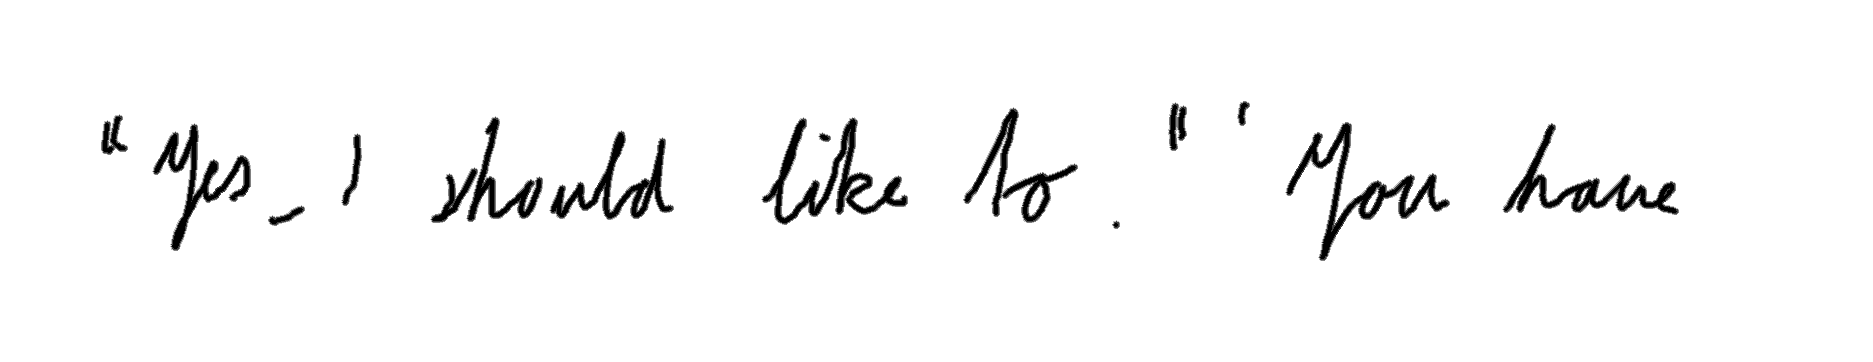 "Yes - I should like to." 'You have